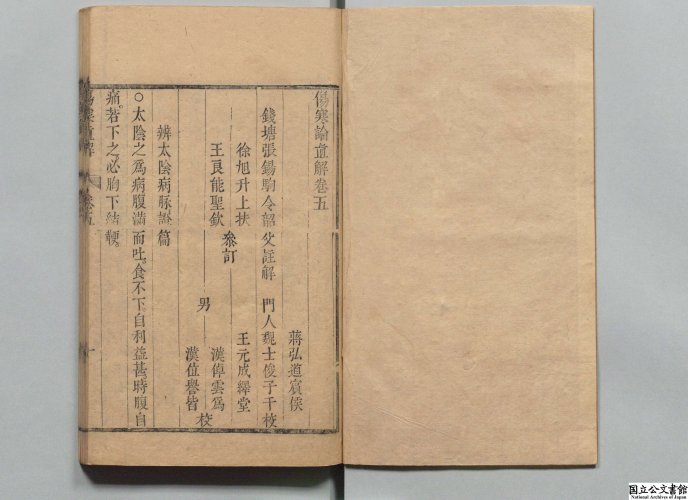 傷寒論直解卷五
蔣弘道賓侯
錢塘張錫駒令韶父註解 門人魏士俊子干校
徐旭升上扶
參訂
王良能聖欽
王元成繹堂
男
漢倬雲爲
漢值譽皆
校
辨太陰病脉證篇
○太陰之爲病腹滿而吐。食不下自利益甚時腹自
痛。若下之必胸下結鞕。
傷寒直解
卷五
一
国立公文書館
National Archives of Japan